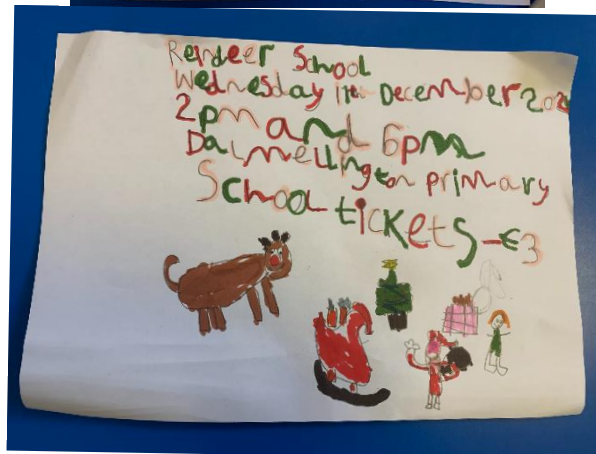 Reindeer School
Wednesday 11th December 202
2pm and 6pm
Dalmellington primary
School tickets - €3